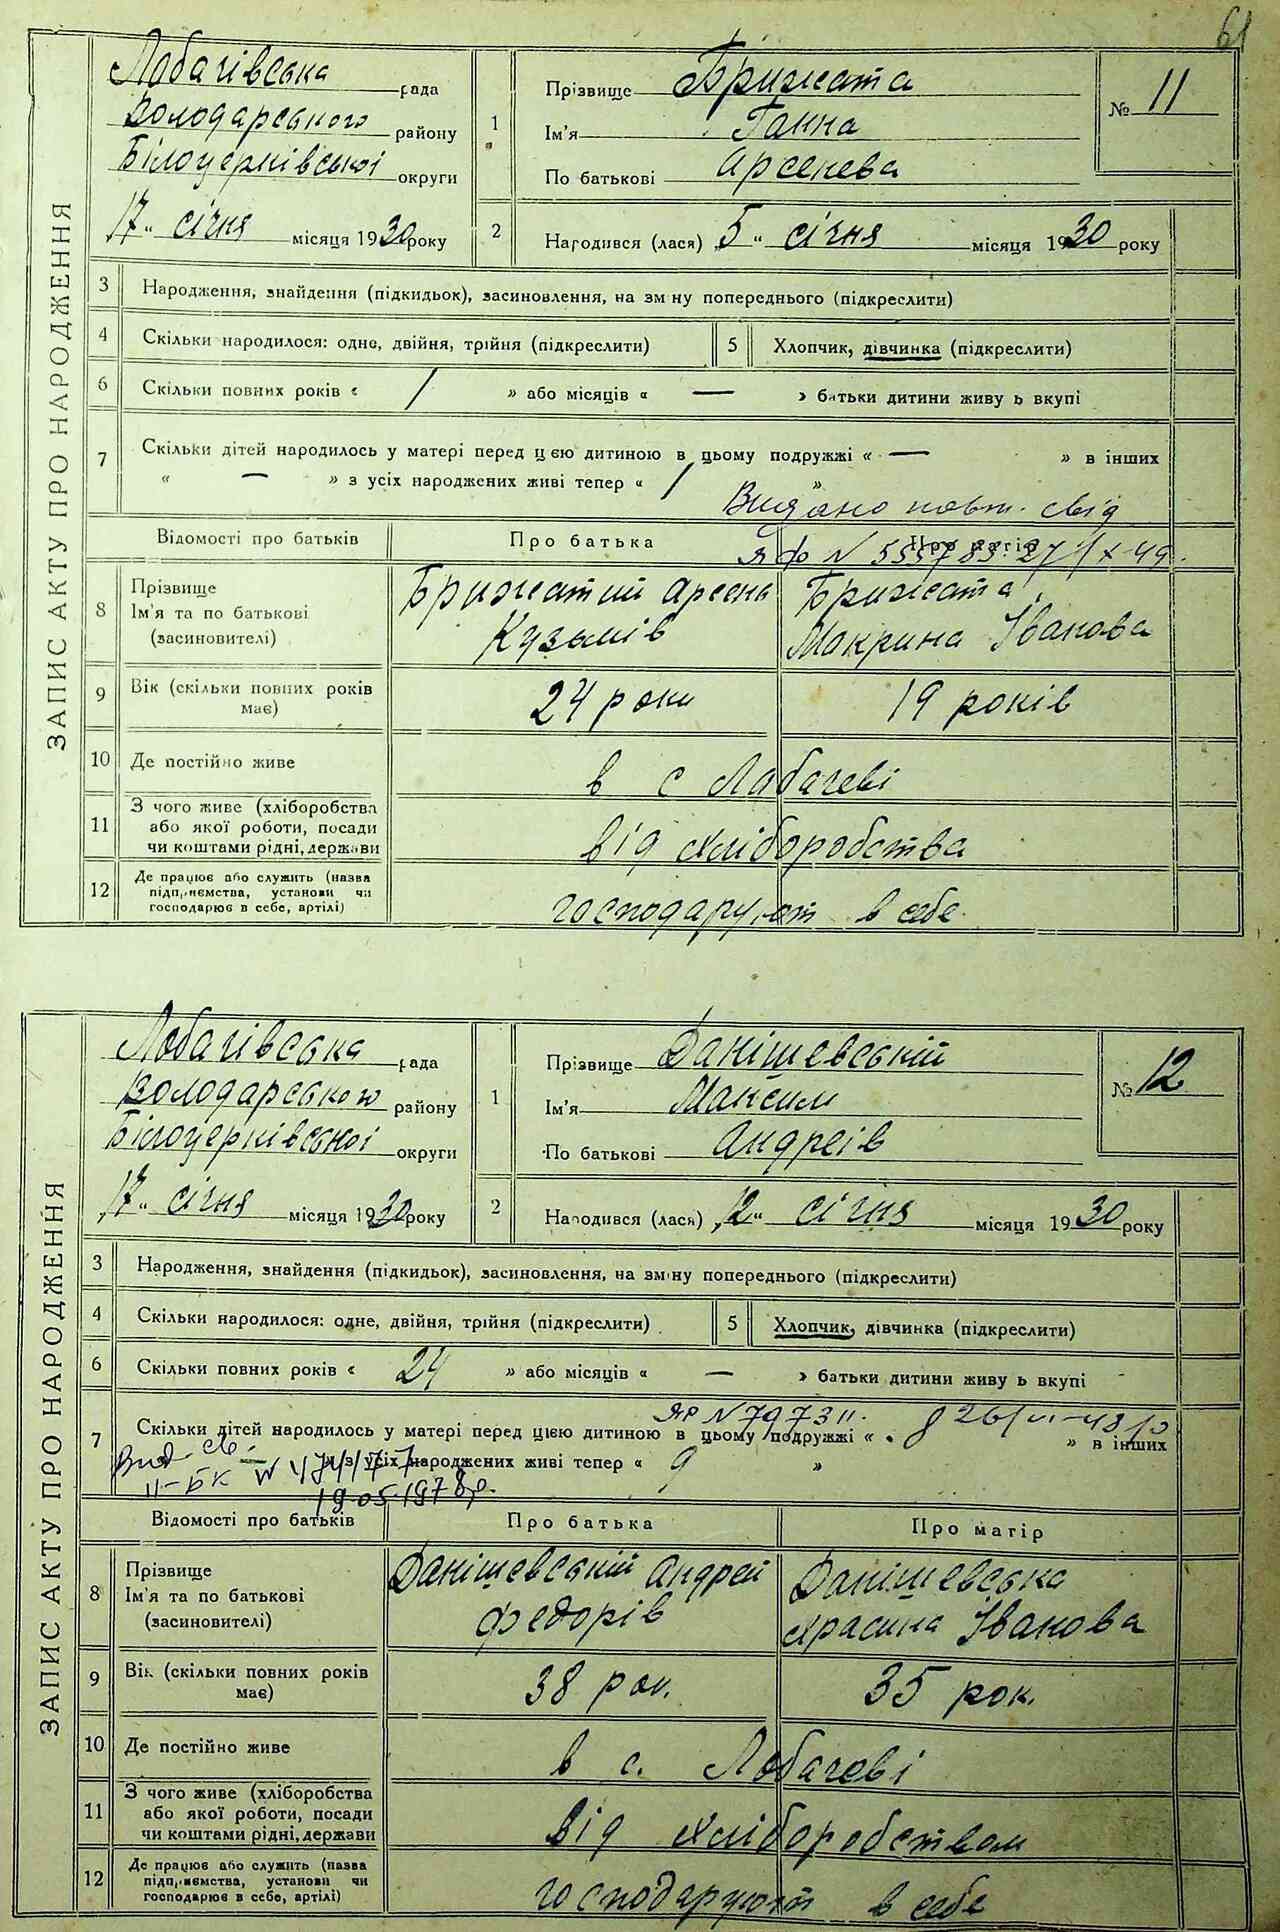 61
ЗАПИС АКТУ ПРО НАРОДЖЕННЯ
Лобачівська рада
Володарського району
Білоцерківської округи
17" січня місяця 1930 року
1
Прізвище Брижата
Ім'я Ганна
По батькові Арсенева
№ 11
2
Народився (лася) 5" січня місяця 1930 року
3 Народження, знайдення (підкидьок), засиновлення, на зміну попереднього (підкреслити)
4 Скільки народилося: одне, двійня, трійня (підкреслити)
5 Хлопчик, дівчинка (підкреслити)
6 Скільки повних років « / » або місяців « — » батьки дитини живуть вкупі
7 Скільки дітей народилось у матері перед цією дитиною в цьому подружжі « — » в інших
« — » з усіх народжених живі тепер « / »
Видано повт. свід
ЯФ N 555783. 27/X-49.
Відомості про батьків
Про батька
Про матір
8 Прізвище
Ім'я та по батькові
(засиновителі)
Брижатий Арсень
Кузьмів
Брижата
Макрина Іванова
9 Вік (скільки повних років
має)
24 роки
19 років
10 Де постійно живе
в с Лобачеві
11 З чого живе (хліборобства
або якої роботи, посади
чи коштами рідні, держави
від хліборобства
12 Де працює або служить (назва
підприємства, установи чи
господарює в себе, артілі)
господарують в себе
ЗАПИС АКТУ ПРО НАРОДЖЕННЯ
Лобачівська рада
Володарського району
Білоцерківської округи
17" січня місяця 1930 року
1
Прізвище Данішевській
Ім'я Максим
По батькові Андреїв
№ 12
2
Народився (лася) 12" січня місяця 1930 року
3 Народження, знайдення (підкидьок), засиновлення, на зміну попереднього (підкреслити)
4 Скільки народилося: одне, двійня, трійня (підкреслити)
5 Хлопчик, дівчинка (підкреслити)
6 Скільки повних років « 24 » або місяців « — » батьки дитини живуть вкупі
ЯР N 797311.
7 Скільки дітей народилось у матері перед цією дитиною в цьому подружжі « 8 » в інших
« — » з усіх народжених живі тепер « 9 »
Вид. св.
II-БК N
19.05.1978р.
Відомості про батьків
Про батька
Про матір
8 Прізвище
Ім'я та по батькові
(засиновителі)
Данішевській Андрей
Федорів
Данішевська
Іванова
9 Вік (скільки повних років
має)
38 рок.
35 рок.
10 Де постійно живе
в с. Лобачеві
11 З чого живе (хліборобства
або якої роботи, посади
чи коштами рідні, держави
від хліборобством
12 Де працює або служить (назва
підприємства, установи чи
господарює в себе, артілі)
господарують в себе